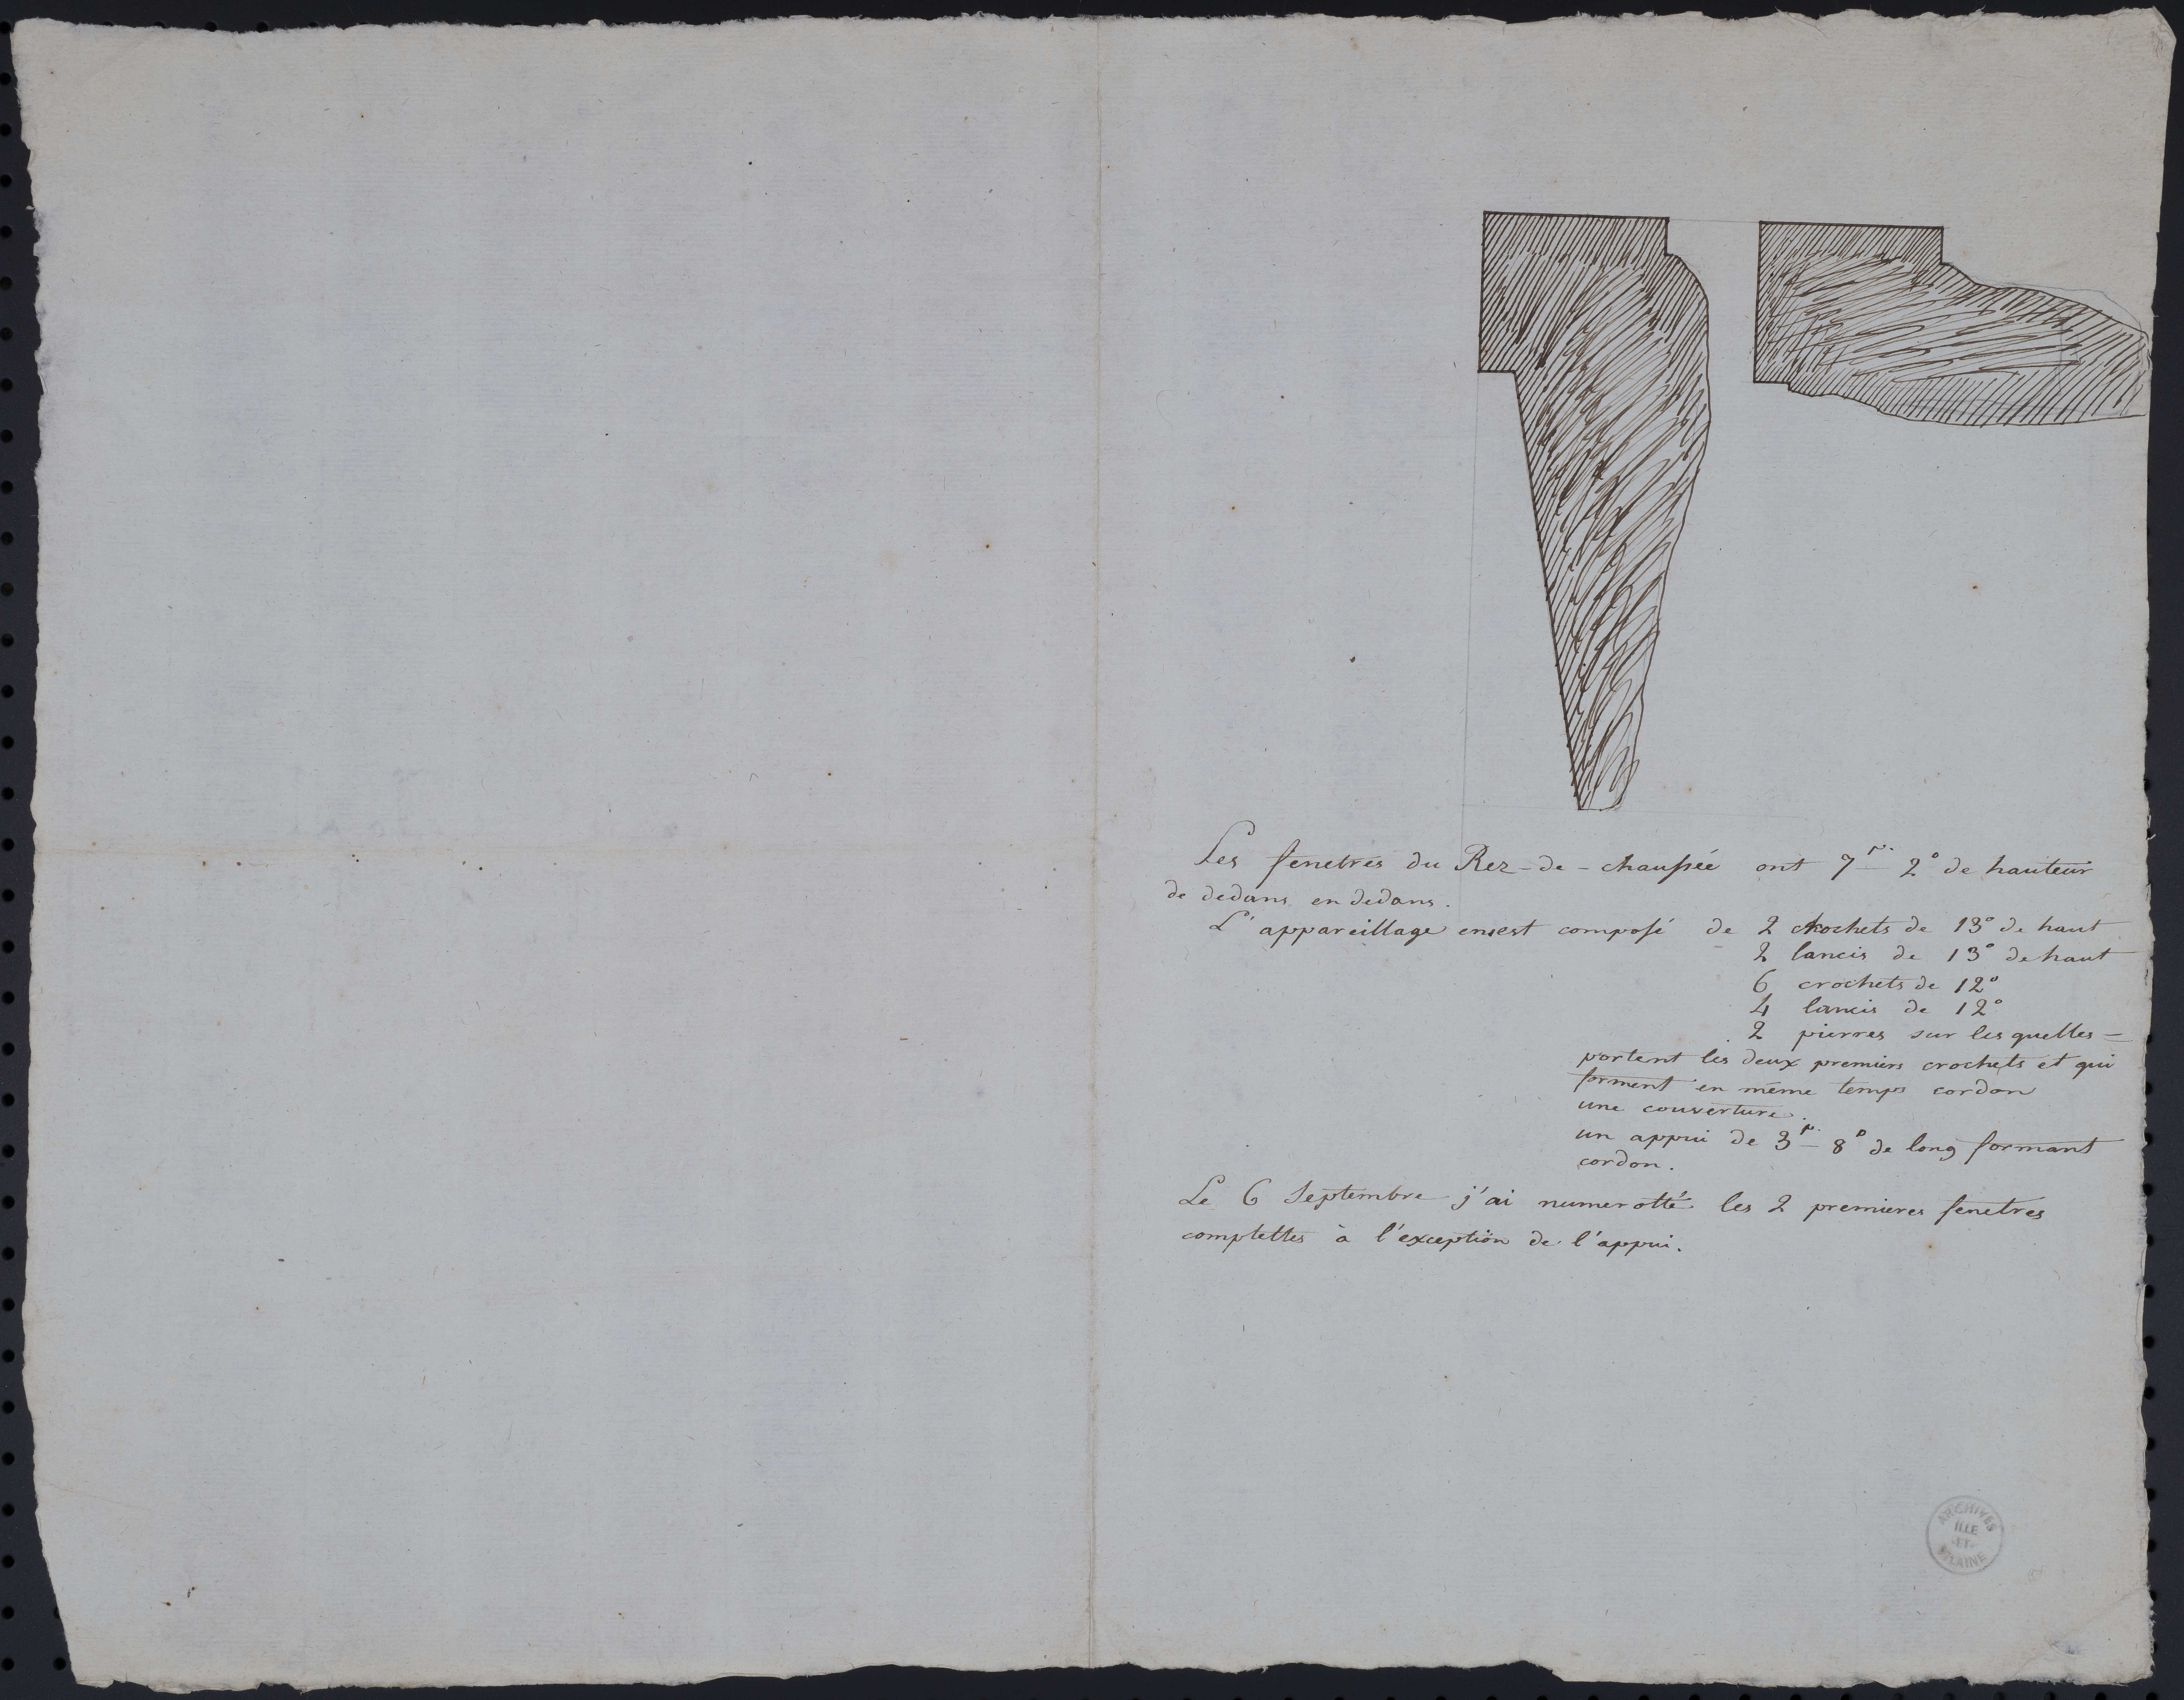 Les fenetres du Rez-de-chaussée ont 7ᵖ· 2° de hauteur
de dedans en dedans.
L'appareillage en est composé de 2 crochets de 13° de haut
2 lancis de 13° de haut
6 crochets de 12°
4 lancis de 12°
2 pierres sur lesquelles =
portent les deux premiers crochets et qui
forment en même temps cordon
une couverture.
un appui de 3ᵖ· 8° de long formant
cordon.
Le 6 Septembre j'ai numerotté les 2 premieres fenetres
complettes à l'exception de l'appui.
ARCHIVES
ILLE
-ET-
VILAINE